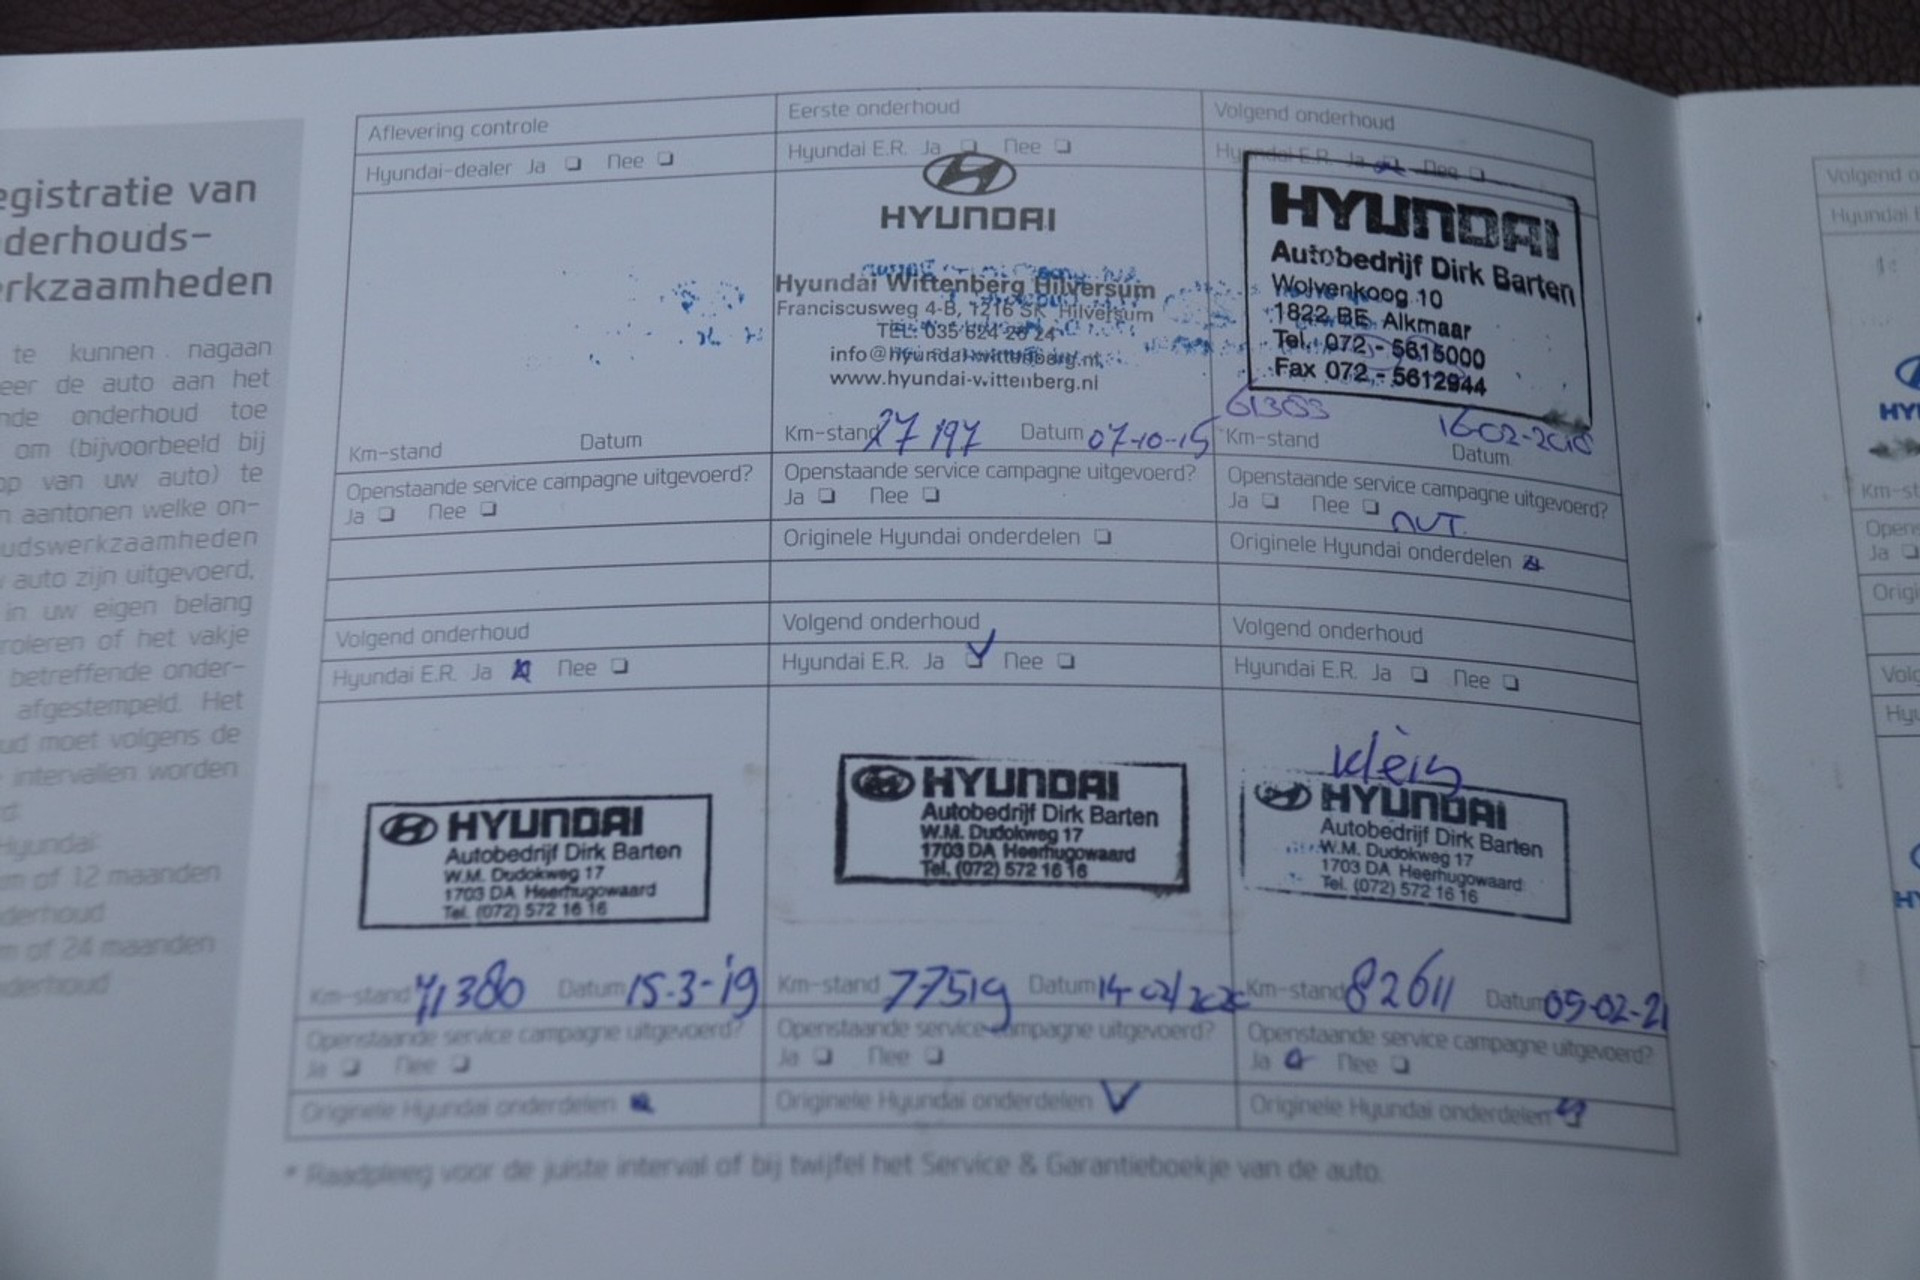 egistratie van
derhouds-
rkzaamheden
te kunnen nagaan
eer de auto aan het
nde onderhoud toe
om (bijvoorbeeld bij
op van uw auto) te
n aantonen welke on-
udswerkzaamheden
auto zijn uitgevoerd,
in uw eigen belang
roleren of het vakje
betreffende onder-
afgestempeld. Het
ud moet volgens de
intervallen worden
Hyundai:
m of 12 maanden
derhoud
m of 24 maanden
derhoud
Aflevering controle
Hyundai-dealer Ja Nee
Km-stand Datum
Openstaande service campagne uitgevoerd?
Ja Nee
Eerste onderhoud
Hyundai E.R. Ja Nee
HYUNDAI
Hyundai Wittenberg Hilversum
Franciscusweg 4-B, 1216 SK Hilversum
TEL: 035 624 26 24
info@hyundai-wittenberg.nl
www.hyundai-wittenberg.nl
Km-stand 27197 Datum 07-10-15
Openstaande service campagne uitgevoerd?
Ja Nee
Originele Hyundai onderdelen
Volgend onderhoud
Hyundai E.R. Ja Nee
HYUNDAI
Autobedrijf Dirk Barten
Wolvenkoog 10
1822 BE Alkmaar
Tel. 072 - 5615000
Fax 072 - 5612944
61303
Km-stand
16-02-2018
Datum
Openstaande service campagne uitgevoerd?
Ja Nee nvt.
Originele Hyundai onderdelen
Volgend onderhoud
Hyundai E.R. Ja Nee
HYUNDAI
Autobedrijf Dirk Barten
W.M. Dudokweg 17
1703 DA Heerhugowaard
Tel. (072) 572 16 16
Km-stand 71380 Datum 15-3-19
Openstaande service campagne uitgevoerd?
Ja Nee
Originele Hyundai onderdelen
Volgend onderhoud
Hyundai E.R. Ja Nee
HYUNDAI
Autobedrijf Dirk Barten
W.M. Dudokweg 17
1703 DA Heerhugowaard
Tel. (072) 572 16 16
Km-stand 77519 Datum 14-02/2020
Openstaande service campagne uitgevoerd?
Ja Nee
Originele Hyundai onderdelen
Volgend onderhoud
Hyundai E.R. Ja Nee
klein
HYUNDAI
Autobedrijf Dirk Barten
W.M. Dudokweg 17
1703 DA Heerhugowaard
Tel. (072) 572 16 16
Km-stand 82611 Datum 05-02-21
Openstaande service campagne uitgevoerd?
Ja Nee
Originele Hyundai onderdelen
* Raadpleeg voor de juiste interval of bij twijfel het Service & Garantieboekje van de auto.
Volgend o
Hyundai E
HY
Km-st
Opens
Ja
Origi
Volg
Hyu
HY